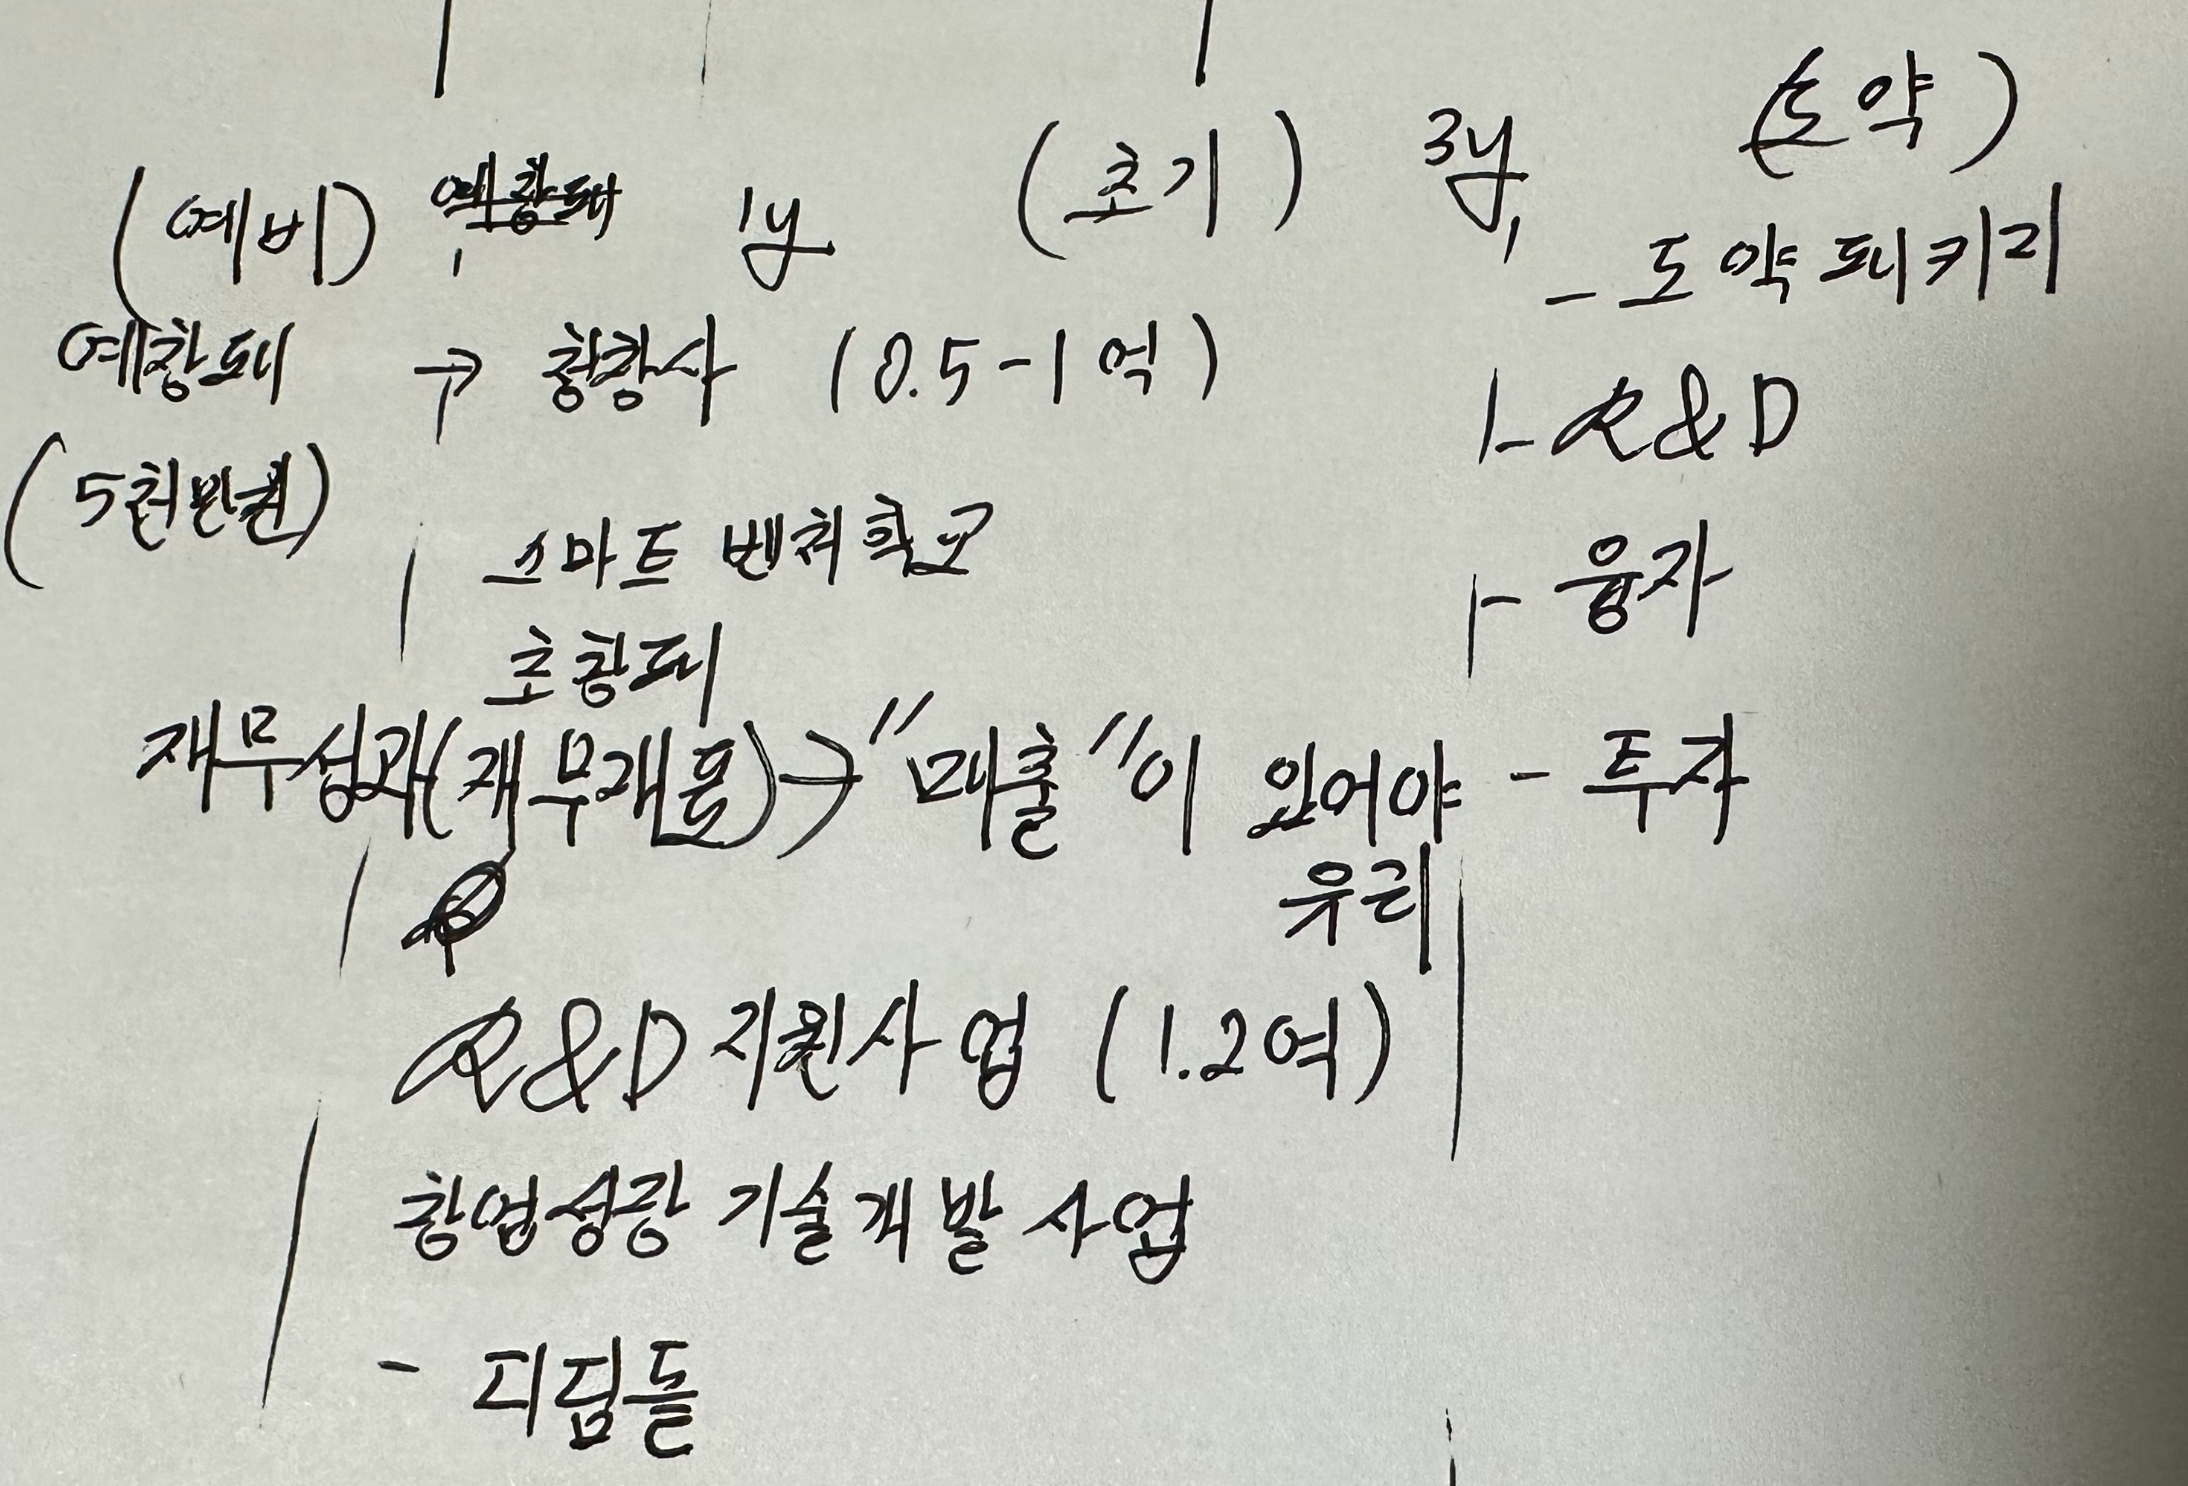 (예비) 1y (초기) 3y (도약)
- 도약패키지
예창패 → 청창사 (0.5-1억)
- R&D
(5천만원)
스마트 벤처학교
- 융자
초창패
재무성과(재무제표) → "매출"이 있어야 - 투자
유리
R&D 지원사업 (1.2억)
창업성장 기술개발 사업
- 디딤돌